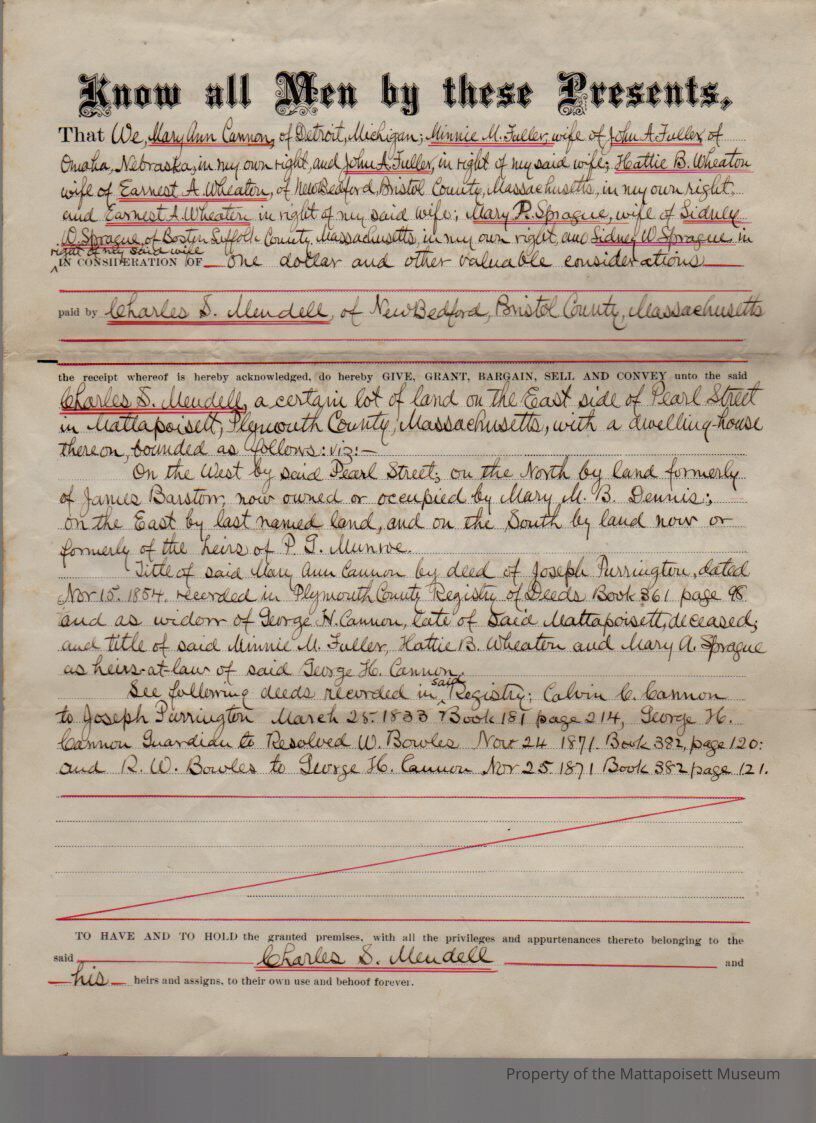 Know all Men by these Presents,
That We, Mary Ann Cannon, of Detroit, Michigan; Minnie M. Fuller, wife of John A. Fuller, of
Omaha, Nebraska, in my own right, and John A. Fuller, in right of my said wife; Hattie B. Wheaton
wife of Earnest A. Wheaton, of New Bedford, Bristol County, Massachusetts, in my own right,
and Earnest A. Wheaton in right of my said wife; Mary P. Sprague, wife of Sidney
W. Sprague, of Boston Suffolk County, Massachusetts, in my own right, and Sidney W. Sprague, in
right of my said wife
IN CONSIDERATION OF one dollar and other valuable considerations
paid by Charles S. Mendell, of New Bedford, Bristol County, Massachusetts
the receipt whereof is hereby acknowledged, do hereby GIVE, GRANT, BARGAIN, SELL AND CONVEY unto the said
Charles S. Mendell, a certain lot of land on the East side of Pearl Street
in Mattapoisett, Plymouth County, Massachusetts, with a dwelling-house
thereon, bounded as follows: viz:—
On the West by said Pearl Street; on the North by land formerly
of James Barstow, now owned or occupied by Mary M. B. Dennis;
on the East by last named land, and on the South by land now or
formerly of the heirs of P. G. Munroe.
Title of said Mary Ann Cannon by deed of Joseph Purrington, dated
Nov 15. 1854. recorded in Plymouth County Registry of Deeds Book 361 page 98
and as widow of George H. Cannon, late of said Mattapoisett, deceased;
and title of said Minnie M. Fuller, Hattie B. Wheaton and Mary A. Sprague
as heirs-at-law of said George H. Cannon.
See following deeds recorded in said Registry: Calvin C. Cannon
to Joseph Purrington March 25. 1833 Book 181 page 214, George H.
Cannon Guardian to Resolved W. Bowles Nov 24 1871. Book 382, page 120:
and R. W. Bowles to George H. Cannon Nov 25 1871 Book 382 page 121.
TO HAVE AND TO HOLD the granted premises, with all the privileges and appurtenances thereto belonging to the
said Charles S. Mendell and
his heirs and assigns, to their own use and behoof forever.
Property of the Mattapoisett Museum